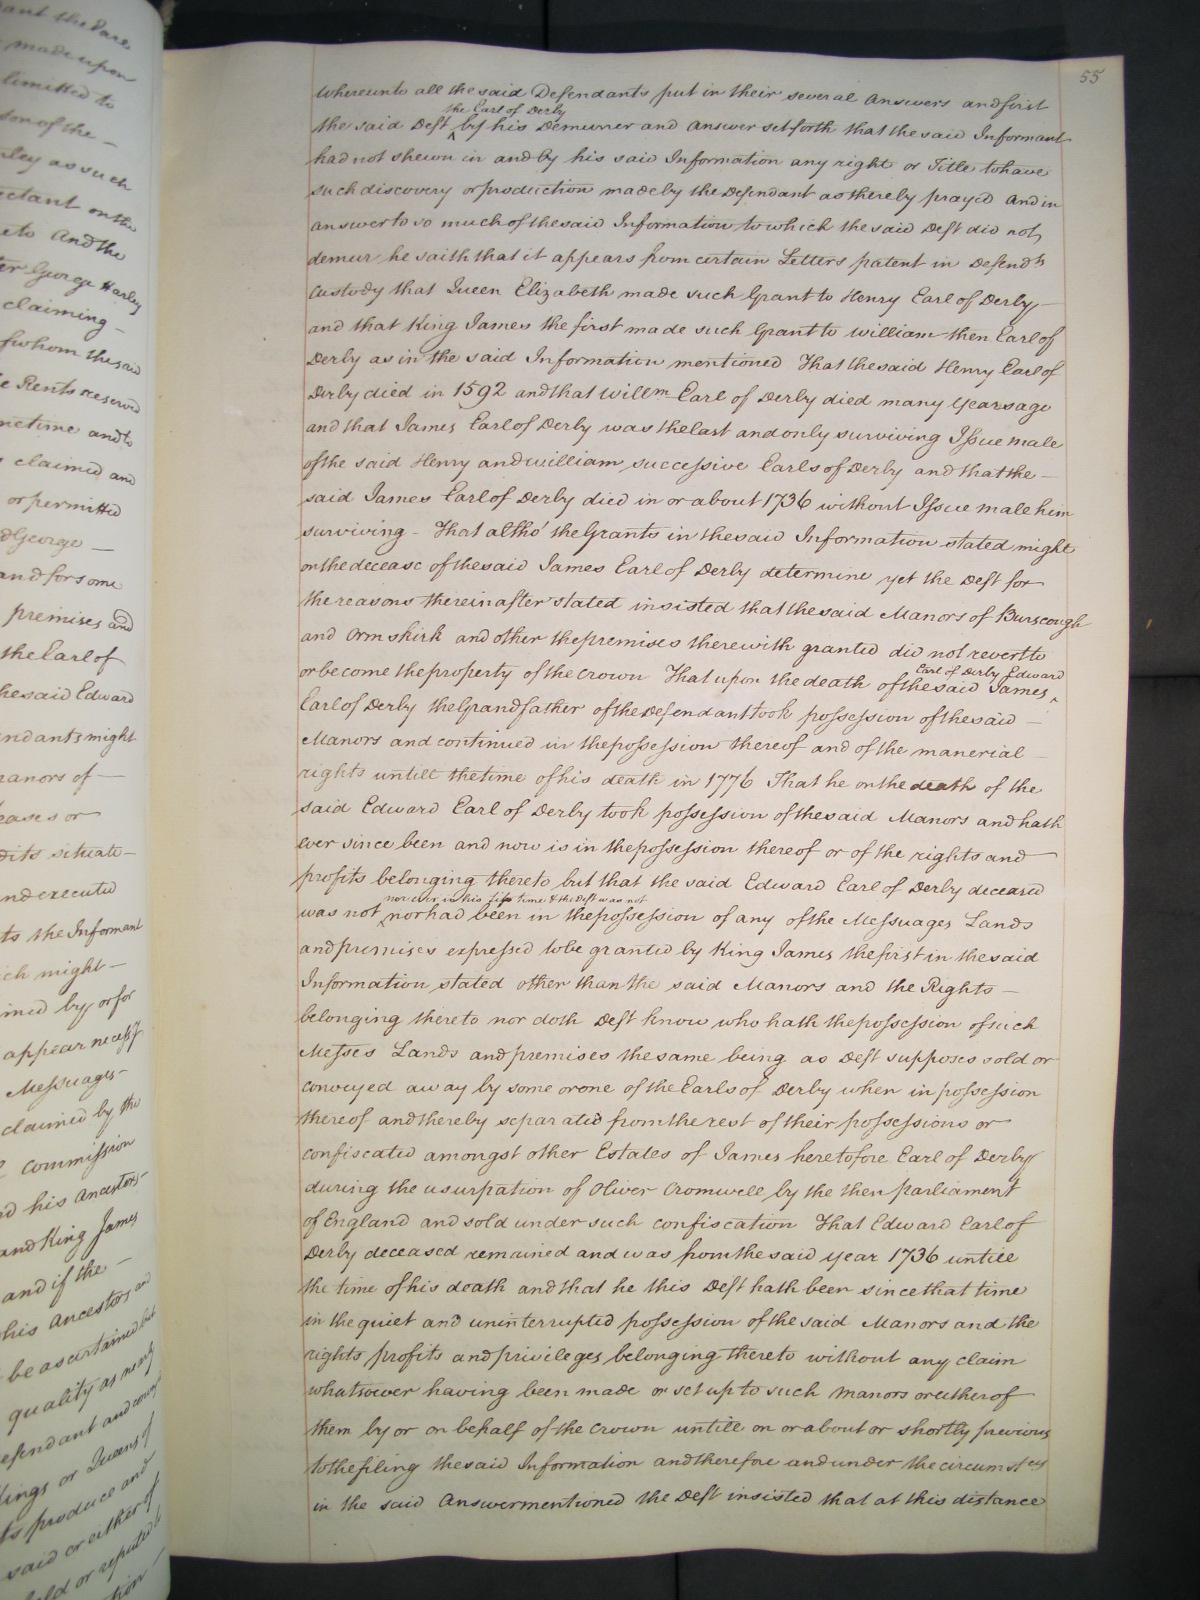 55
Whereunto all the said Defendants put in their several Answers and first
the Earl of Derby
the said Deft by his Demurrer and Answer set forth that the said Informant
had not shewn in and by his said Information any right or Title to have
such discovery or production made by the Defendant as thereby prayed And in
answer to so much of the said Information to which the said Deft did not
demur he saith that it appears from certain Letters patent in Defend.ts
Custody that Queen Elizabeth made such Grant to Henry Earl of Derby
and that King James the first made such Grant to William then Earl of
Derby as in the said Information mentioned That the said Henry Earl of
Derby died in 1592 and that Will.m Earl of Derby died many Years ago
and that James Earl of Derby was the last and only surviving Issue male
of the said Henry and William successive Earls of Derby and that the —
said James Earl of Derby died in or about 1736 without Issue male him
surviving - That altho' the Grants in the said Information stated might
on the decease of the said James Earl of Derby determine yet the Deft for
the reasons thereinafter stated insisted that the said Manors of Burscough
and Ormskirk and other the premises therewith granted did not revert to
Earl of Derby Edward
or become the property of the Crown That upon the death of the said James
Earl of Derby the Grandfather of the Defendant took possession of the said —
Manors and continued in the possession thereof and of the manerial —
rights untill the time of his death in 1776 That he on the death of the
said Edward Earl of Derby took possession of the said Manors and hath
ever since been and now is in the possession thereof or of the rights and
profits belonging thereto but that the said Edward Earl of Derby deceased
nor ever in his life time & the Deft was not
was not nor had been in the possession of any of the Messuages Lands
and premises expressed to be granted by King James the first in the said
Information stated other than the said Manors and the Rights —
belonging thereto nor doth Deft know who hath the possession of such
Messes Lands and premises the same being as Deft supposes sold or
conveyed away by some or one of the Earls of Derby when in possession
thereof and thereby separated from the rest of their possessions or
confiscated amongst other Estates of James heretofore Earl of Derby
during the usurpation of Oliver Cromwell by the then parliament
of England and sold under such confiscation That Edward Earl of
Derby deceased remained and was from the said year 1736 untill
the time of his death and that he this Deft hath been since that time
in the quiet and uninterrupted possession of the said Manors and the
rights profits and privileges belonging thereto without any claim
whatsoever having been made or set up to such Manors or either of
them by or on behalf of the Crown untill on or about or shortly previous
to the filing the said Information and therefore and under the circumst.ces
in the said Answer mentioned the Deft insisted that at this distance